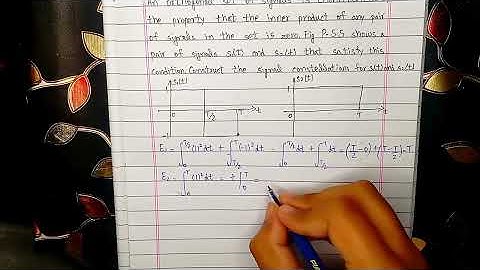 An orthogonal set of signals is
the property that the inner product of any pair
of signals in the set is zero. Fig P-5.5 shows a
pair of signals s₁(t) and s₂(t) that satisfy this
condition. Construct the signal constellations for s₁(t) and s₂(t)
s₁(t) s₂(t)
1 1
T/2 T t T t
-1
E₁ = ∫₀^T/2 (1)² dt + ∫_T/2^T (-1)² dt = ∫₀^T/2 dt + ∫_T/2^T dt = (T/2 - 0) + (T - T/2) = T.
E₂ = ∫₀^T (1)² dt = t |₀^T =